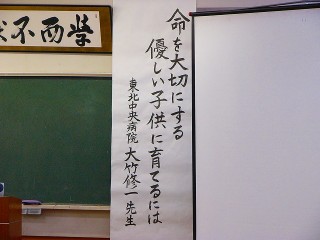 命を大切にする
優しい子供に育てるには
東北中央病院 大竹修一先生
学而不